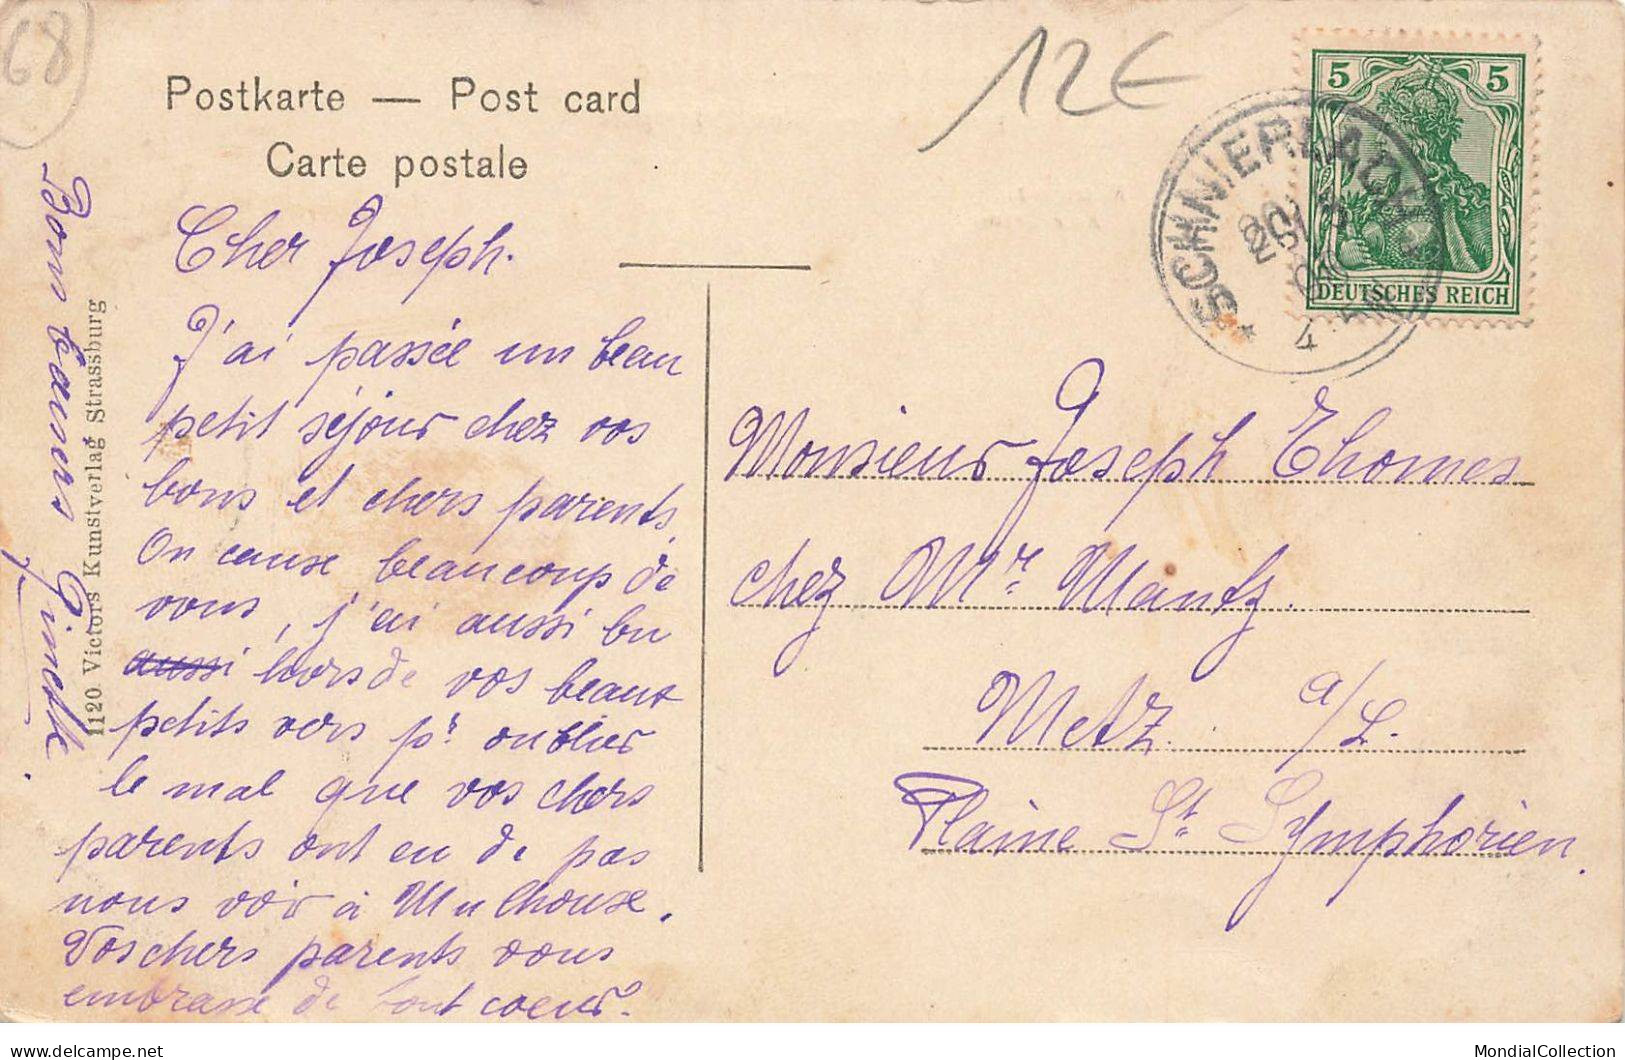 68
12€
Postkarte — Post card
Carte postale
5 5
DEUTSCHES REICH
SCHNIERLACH
4
Cher Joseph.
J'ai passée un beau
petit séjour chez vos
bons et chers parents,
On cause beaucoup de
vous, j'ai aussi bu
aussi hors de vos beaux
petits vers pr oublier
le mal que vos chers
parents ont eu de pas
nous voir à Mulhouse.
Vos chers parents vous
embrasse de tout coeur.
Bons baisers Ginette.
1120 Victors Kunstverlag Strassburg
Monsieur Joseph Thomes
chez Mr Mantz.
Metz. a/L.
Plaine St Symphorien.
MondialCollection